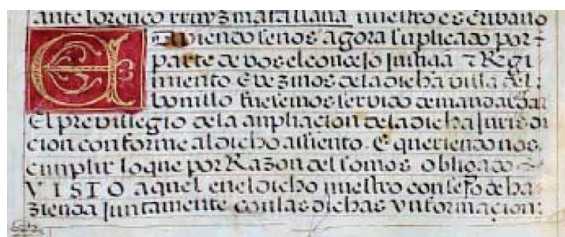 ante lorenço rruyz matallana nuestro escribano
E aviendosenos agora suplicado por
parte de vos el concejo justicia e Regi
miento E vezinos de la dicha villa del
bonillo fuesemos servido de mandar dar
El previllegio de la anpliacion de la dicha Jurisdi
cion conforme al dicho asiento. E queriendo nos
cumplir lo que por Razon del somos obligado
VISTO aquel en el dicho nuestro consejo de ha
zienda Juntamente con las dichas ynformaçion: